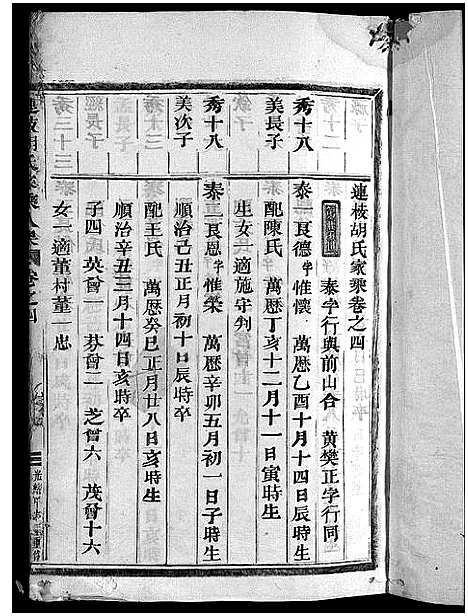 連枝胡氏家乘卷之四
泰字行與前山合 黃樊正字行同
秀十八 泰一良德 字惟懷 萬曆乙酉十月十四日辰時生
美長子 配陳氏 萬曆丁亥十二月十一日寅時生
生女一適施守判
秀十八 泰二良恩 字惟榮 萬曆辛卯五月初一日子時生
美次子 順治己丑正月初十日辰時卒
配王氏 萬曆癸巳正月廿八日亥時生
順治辛丑三月十四日亥時卒
子四 英曾一 芬曾二 芝曾六 茂曾十六
女一適董村董一忠
連枝胡氏家乘 卷之四